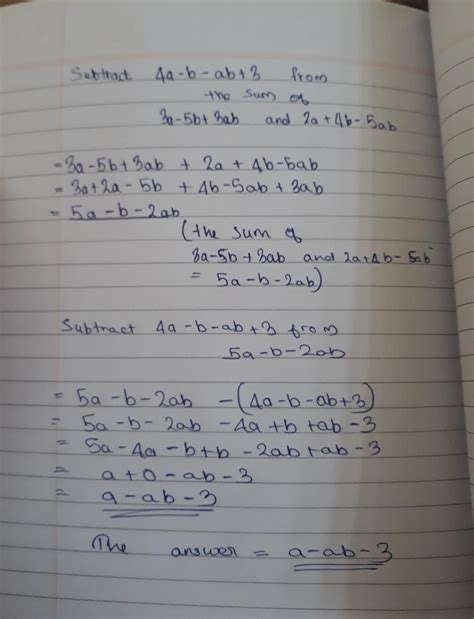 Subtract 4a-b-ab+3 from
the sum of
3a-5b+3ab and 2a+4b-5ab
=3a-5b+3ab + 2a+4b-5ab
=3a+2a-5b +4b-5ab+3ab
=5a-b-2ab
(the sum of
3a-5b+3ab and 2a+4b-5ab
= 5a-b-2ab)
Subtract 4a-b-ab+3 from
5a-b-2ab
= 5a-b-2ab -(4a-b-ab+3)
= 5a-b-2ab -4a+b+ab-3
= 5a-4a-b+b-2ab+ab-3
= a+0-ab-3
= a-ab-3
The answer = a-ab-3